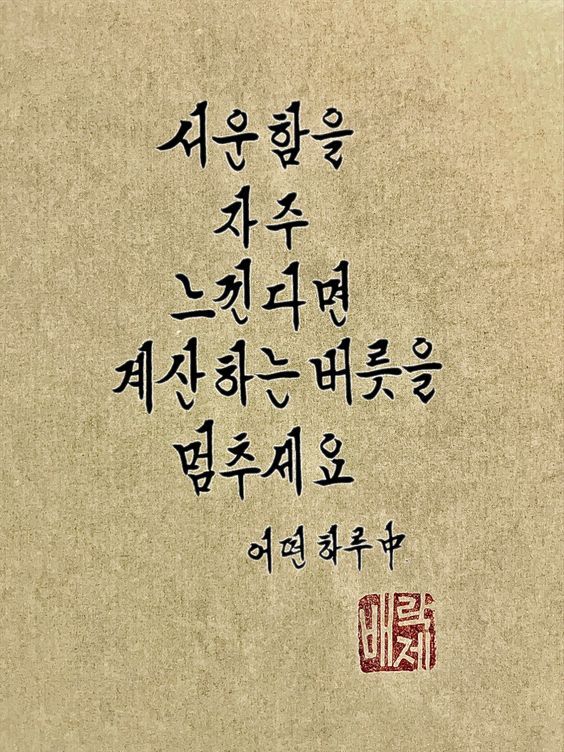 서운함을
자주
느낀다면
계산하는 버릇을
멈추세요
어떤하루中
배락제